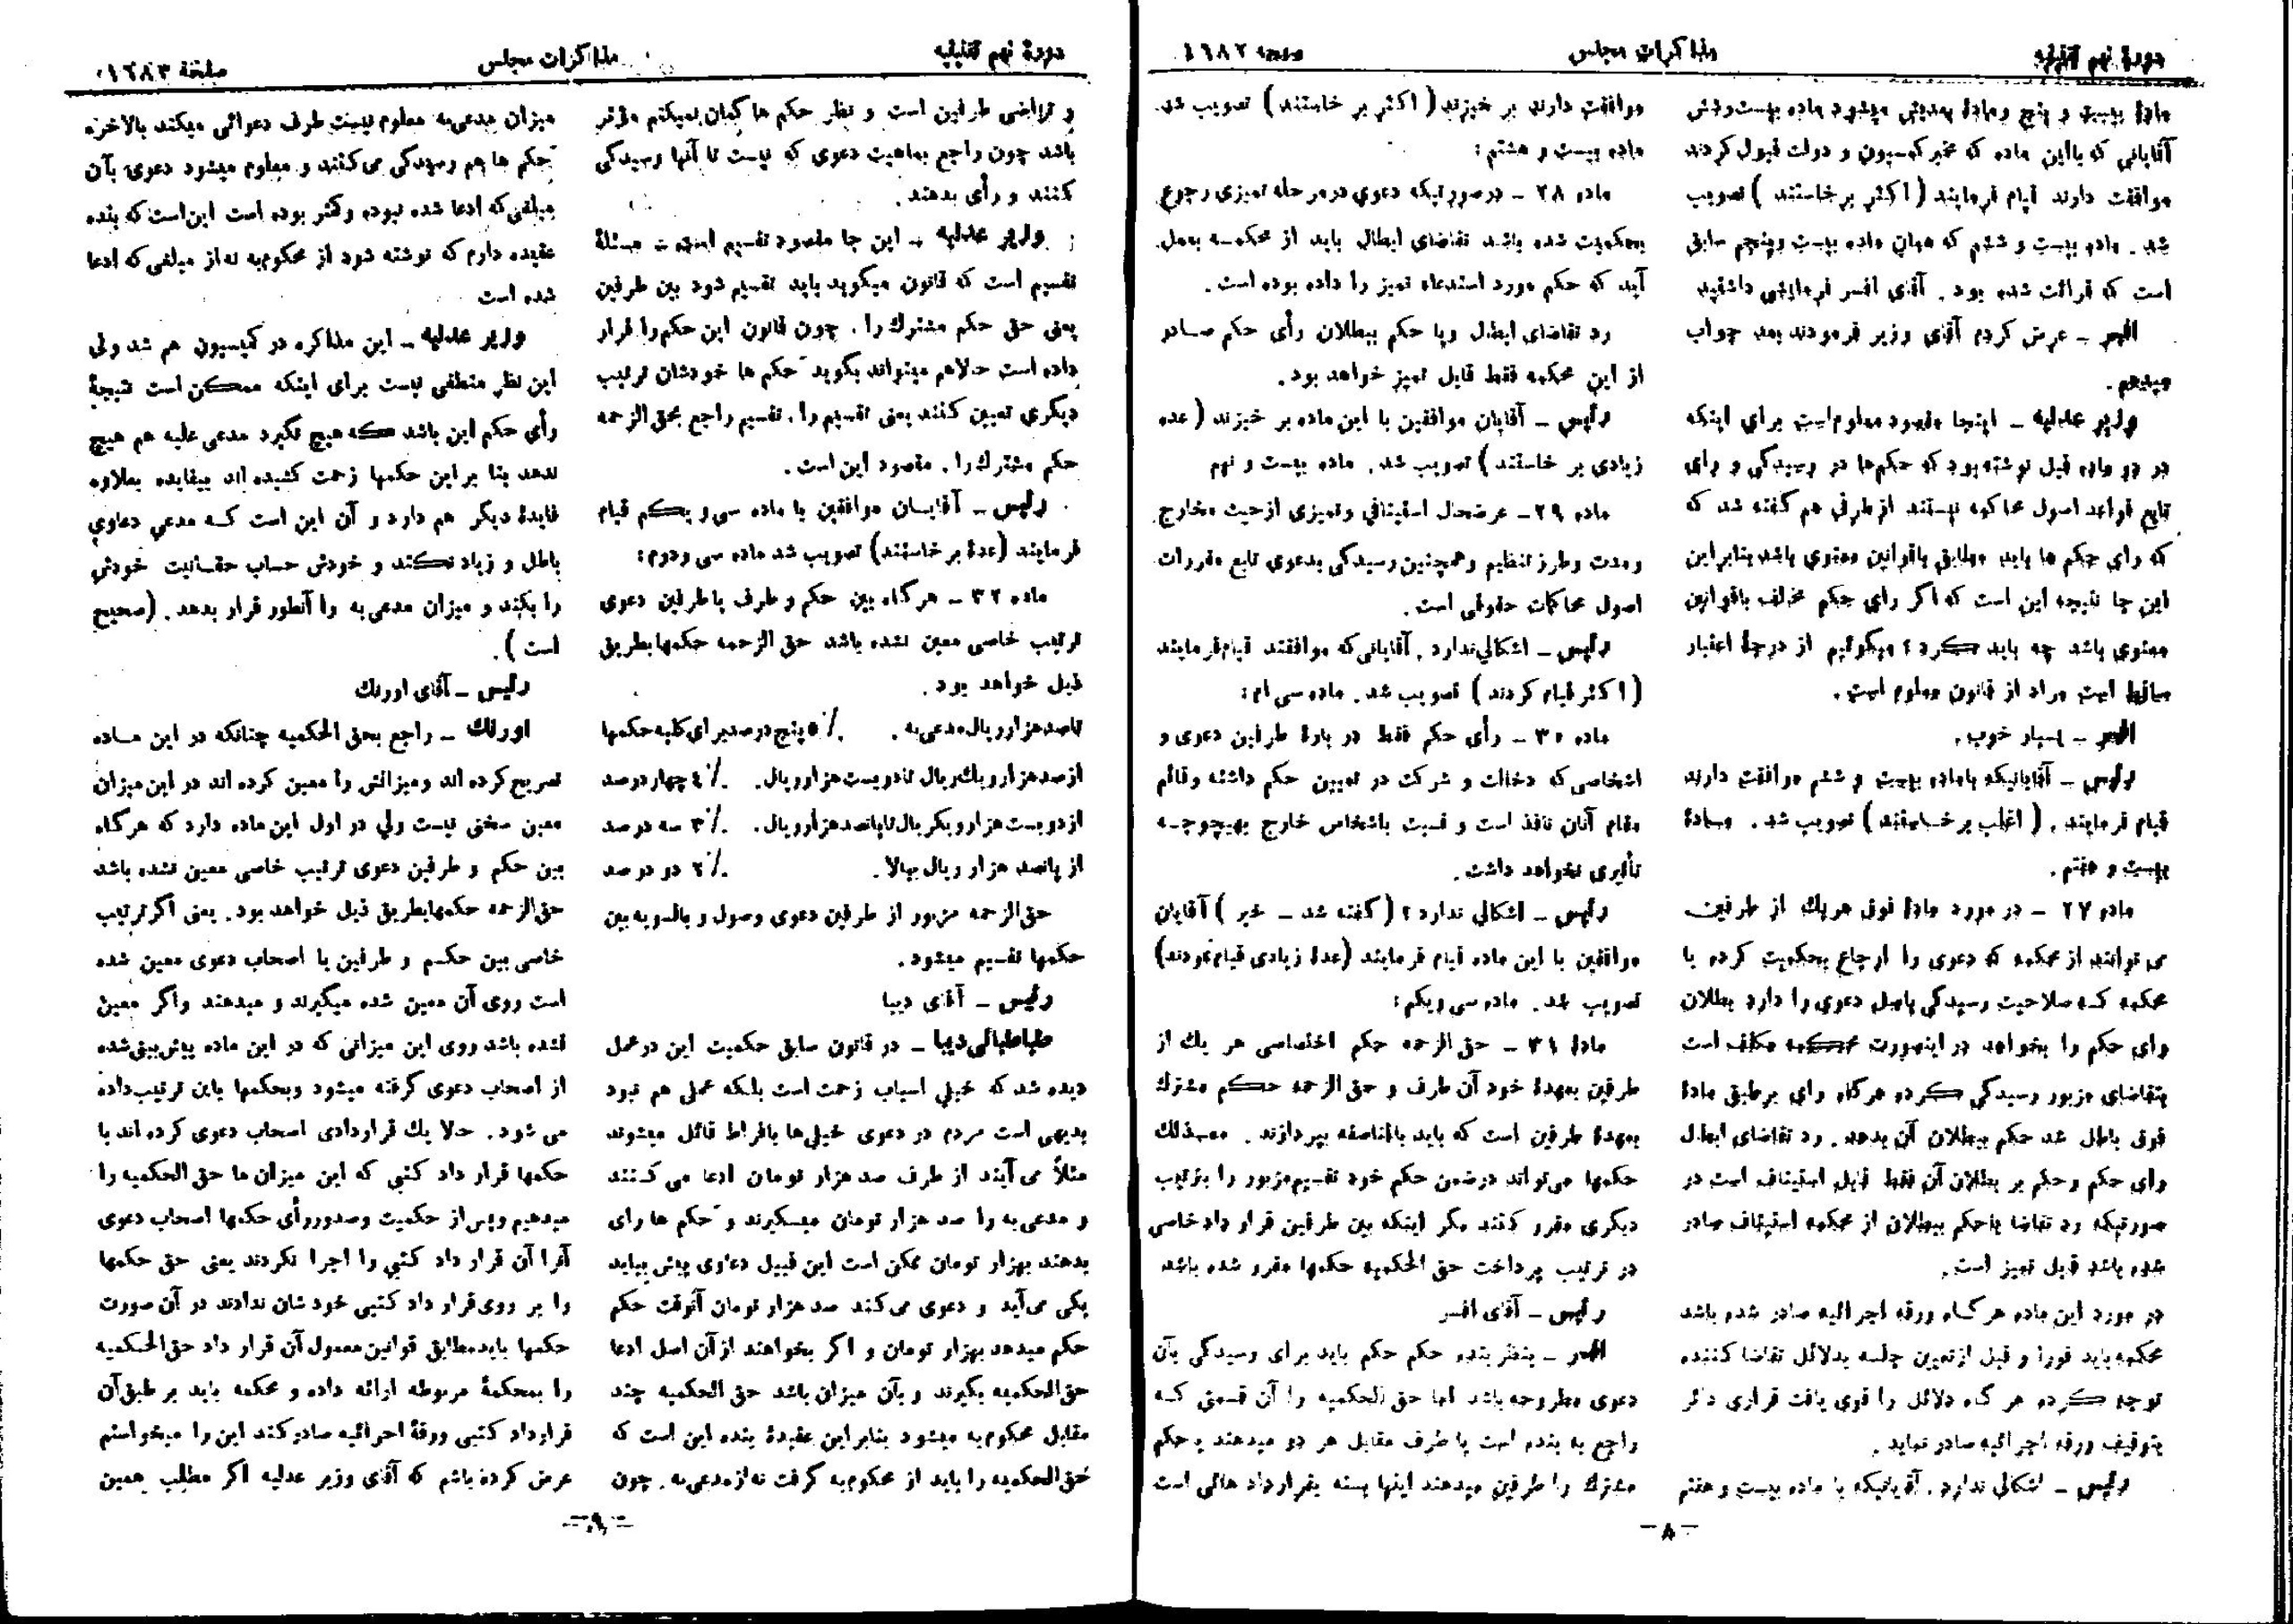 دورهٔ نهم تقنینیه
مذاکرات مجلس
صفحه ۱٦۸۲
مادهٔ بیست و پنج و مادهٔ بعدیش میشود ماده بیست و شش
آقایانی که با این ماده که مخبر کمیسیون و دولت قبول کردند
موافقت دارند قیام فرمایند (اکثر برخاستند) تصویب
شد. ماده بیست و ششم که همان ماده بیست و پنجم سابق
است که قرائت شده بود. آقای افسر فرمایشی داشتید
افسر ـ عرض کردم آقای وزیر فرمودند بعد جواب
میدهم.
وزیر عدلیه ـ اینجا مقصود معلوم است برای اینکه
در دو ماده قبل نوشته بود که حکم‌ها در رسیدگی و رای
تابع قواعد اصول محاکمه نیستند از طرفی هم گفته شد که
که رای حکم ها باید مطابق با قوانین معنوی باشد بنابراین
این جا نتیجه این است که اگر رای حکم مخالف با قوانین
معنوی باشد چه باید کرد؟ میگوئیم از درجهٔ اعتبار
ساقط است مراد از قانون معلوم است.
افسر ـ بسیار خوب.
رئیس ـ آقایانیکه با ماده بیست و ششم موافقت دارند
قیام فرمایند. (اغلب برخاستند) تصویب شد. مادهٔ
بیست و هفتم.
ماده ۲۷ ـ در مورد مادهٔ فوق هریك از طرفین
می توانند از محکمه که دعوی را ارجاع بحکمیت کرده یا
محکمه که صلاحیت رسیدگی باصل دعوی را دارد بطلان
رای حکم را بخواهد در اینصورت محکمه مکلف است
بتقاضای مزبور رسیدگی کرده هرگاه رای برطبق مادهٔ
فوق باطل شد حکم ببطلان آن بدهد. رد تقاضای ابطال
رای حکم و حکم بر بطلان آن فقط قابل استیناف است در
صورتیکه رد تقاضا یا حکم ببطلان از محکمه استیناف صادر
شده باشد قابل تمیز است.
در مورد این ماده هرگاه ورقه اجرائیه صادر شده باشد
محکمه باید فوراً و قبل از تعیین جلسه بدلائل تقاضا کننده
توجه کرده هر گاه دلائل را قوی یافت قراری دائر
بتوقیف ورقه اجرائیه صادر نماید.
رئیس ـ اشکالی ندارد. آقایانیکه با ماده بیست و هفتم
موافقت دارند بر خیزند (اکثر بر خاستند) تصویب شد.
ماده بیست و هشتم:
ماده ۲۸ ـ درصورتیکه دعوی در مرحله تمیزی رجوع
بحکمیت شده باشد تقاضای ابطال باید از محکمه بعمل
آید که حکم مورد استدعاء تمیز را داده بوده است.
رد تقاضای ابطال ویا حکم ببطلان رأی حکم صادر
از این محکمه فقط قابل تمیز خواهد بود.
رئیس ـ آقایان موافقین با این ماده بر خیزند (عده
زیادی بر خاستند) تصویب شد. ماده بیست و نهم
ماده ۲۹ ـ عرضحال استینافی و تمیزی از حیث مخارج
و مدت و طرز تنظیم و همچنین رسیدگی بدعوی تابع مقررات
اصول محاکمات حقوقی است.
رئیس ـ اشکالی ندارد. آقایانی‌که موافقند قیام فرمایند
(اکثر قیام کردند) تصویب شد. ماده سی ام:
ماده ۳۰ ـ رأی حکم فقط در بارهٔ طرفین دعوی و
اشخاصی که دخالت و شرکت در تعیین حکم داشته و قائم
مقام آنان نافذ است و نسبت باشخاص خارج بهیچوجه
تأثیری نخواهد داشت.
رئیس ـ اشکالی ندارد؟ (گفته شد ـ خیر) آقایان
موافقین با این ماده قیام فرمایند (عدهٔ زیادی قیام نمودند)
تصویب شد. ماده سی و یکم:
مادهٔ ۳۱ ـ حق الزحمه حکم اختصاصی هر یك از
طرفین بعهدهٔ خود آن طرف و حق الزحمه حکم مشترك
بعهدهٔ طرفین است که باید بالمناصفه بپردازند. معذلك
حکمها می‌تواند درضمن حکم خود تقسیم مزبور را بترتیب
دیگری مقرر کنند مگر اینکه بین طرفین قرار داد خاصی
در ترتیب پرداخت حق الحکمیه حکمها مقرر شده باشد
رئیس ـ آقای افسر
افسر ـ بنظر بنده حکم حکم باید برای رسیدگی بآن
دعوی مطروحه باشد اما حق الحکمیه را آن قسمتی که
راجع به بنده است یا طرف مقابل هر دو میدهند و حکم
مشترك را طرفین میدهند اینها بسته بقرارداد هائی است
ـ ۸ ـ
دورهٔ نهم تقنینیه
مذاکرات مجلس
صفحه ۱٦۸۳
و تراضی طرفین است و نظر حکم ها گمان نمیکنم مؤثر
باشد چون راجع بماهیت دعوی که نیست تا آنها رسیدگی
کنند و رأی بدهند.
وزیر عدلیه ـ این جا مقصود تقسیم است ـ مسئلهٔ
تقسیم است که قانون میگوید باید تقسیم شود بین طرفین
یعنی حق حکم مشترك را. چون قانون این حکم را قرار
داده است حالا هم میتواند بگوید حکم ها خودشان ترتیب
دیگری تعیین کنند یعنی تقسیم را. تقسیم راجع بحق الزحمه
حکم مشترك را. مقصود این است.
رئیس ـ آقایان موافقین با ماده سی و یکم قیام
فرمایند (عدهٔ برخاستند) تصویب شد ماده سی و دوم:
ماده ۳۲ ـ هر گاه بین حکم و طرف یا طرفین دعوی
ترتیب خاصی معین نشده باشد حق الزحمه حکمها بطریق
ذیل خواهد بود.
تا صد هزار ریال مدعی‌به. ۵٪ پنج در صد برای کلیه حکمها
از صد هزار و یك ریال تا دویست هزار ریال. ٤٪ چهار درصد
از دویست هزار و یکریال تا پانصد هزار ریال. ۳٪ سه در صد
از پانصد هزار ریال ببالا. ۲٪ دو در صد
حق الزحمه مزبور از طرفین دعوی وصول و بالسویه بین
حکمها تقسیم میشود.
رئیس ـ آقای دیبا
طباطبائی دیبا ـ در قانون سابق حکمیت این در عمل
دیده شد که خیلی اسباب زحمت است بلکه عملی هم نبود
بدیهی است مردم در دعوی خیلی‌ها بافراط قائل میشوند
مثلاً می آیند از طرف صد هزار تومان ادعا می کنند
و مدعی به را صد هزار تومان میگیرند و حکم ها رای
بدهند بهزار تومان ممکن است این قبیل دعاوی پیش بیاید
یکی می‌آید و دعوی می کند صد هزار تومان آنوقت حکم
حکم میدهد بهزار تومان و اگر بخواهند از آن اصل ادعا
حق‌الحکمیه بگیرند و بآن میزان باشد حق الحکمیه چند
مقابل محکوم به میشود بنابراین عقیدهٔ بنده این است که
حق الحکمیه را باید از محکوم‌به گرفت نه از مدعی‌به. چون
میزان مدعی‌به معلوم نیست طرف دعوائی میکند بالاخره
حکم ها هم رسیدگی می کنند و معلوم میشود دعوی بآن
مبلغی که ادعا شده نبوده و کمتر بوده است این است که بنده
عقیده دارم که نوشته شود از محکوم‌به نه از مبلغی که ادعا
شده است
وزیر عدلیه ـ این مذاکره در کمیسیون هم شد ولی
این نظر منطقی نیست برای اینکه ممکن است نتیجهٔ
رأی حکم این باشد که هیچ نگیرد مدعی علیه هم هیچ
ندهد بنا بر این حکمها زحمت کشیده اند بیفایده بعلاوه
فایدهٔ دیگر هم دارد و آن این است که مدعی دعاوی
باطل و زیاد نکند و خودش حساب حقانیت خودش
را بکند و میزان مدعی به را آنطور قرار بدهد. (صحیح
است).
رئیس ـ آقای اورنك
اورنك ـ راجع بحق الحکمیه چنانکه در این ماده
تصریح کرده اند و میزانش را معین کرده اند در این میزان
معین سخنی نیست ولی در اول این ماده دارد که هرگاه
بین حکم و طرفین دعوی ترتیب خاصی معین نشده باشد
حق الزحمه حکمها بطریق ذیل خواهد بود. یعنی اگر ترتیب
خاصی بین حکم و طرفین یا اصحاب دعوی معین شده
است روی آن معین شده میگیرند و میدهند و اگر معین
نشده باشد روی این میزانی که در این ماده پیش بینی شده
از اصحاب دعوی گرفته میشود و بحکمها باین ترتیب داده
می شود. حالا یك قراردادی اصحاب دعوی کرده اند با
حکمها قرار داد کتبی که این میزان ما حق الحکمیه را
میدهیم و پس از حکمیت و صدور رأی حکمها اصحاب دعوی
آنرا آن قرار داد کتبی را اجرا نکردند یعنی حق حکمها
را بر روی قرار داد کتبی خودشان ندادند در آن صورت
حکمها باید مطابق قوانین معمول آن قرار داد حق الحکمیه
را بمحکمهٔ مربوطه ارائه داده و محکمه باید بر طبق آن
قرارداد کتبی ورقهٔ اجرائیه صادر کند این را میخواستم
عرض کرده باشم که آقای وزیر عدلیه اگر مطلب همین
ـ ۹ ـ